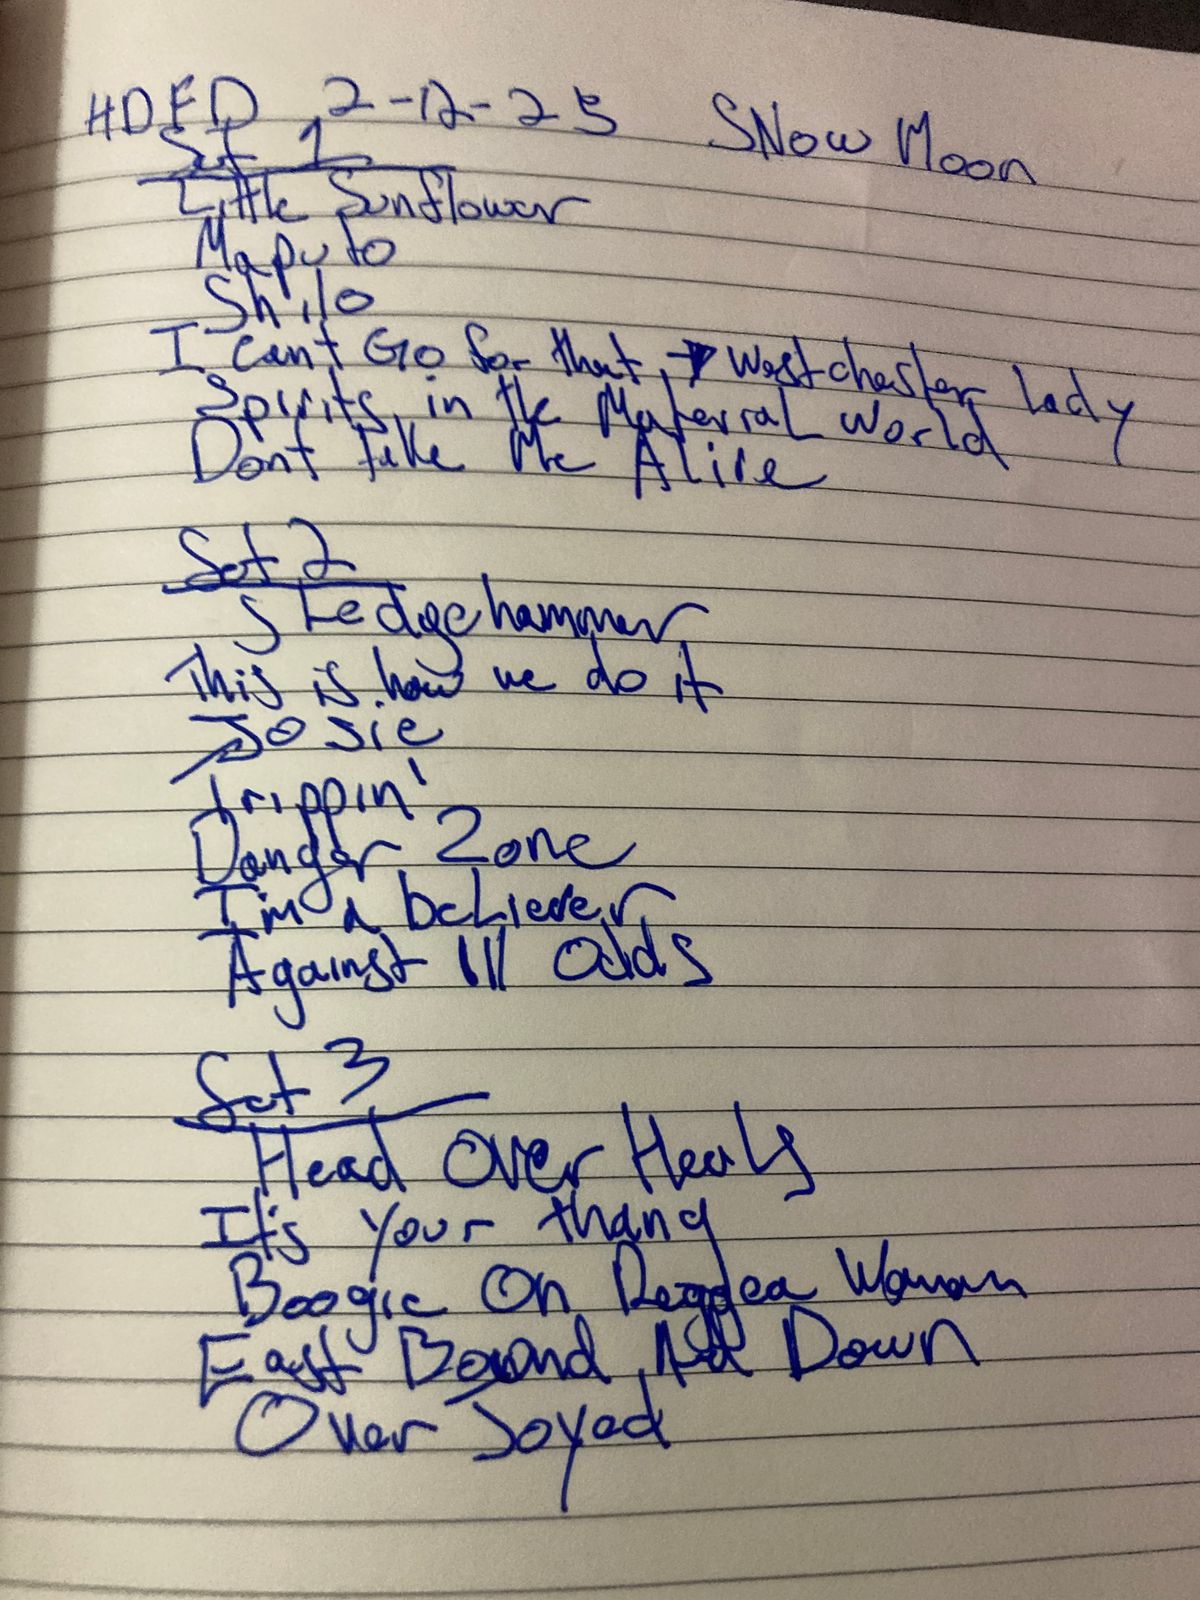 HDFD 2-12-25 SNow Moon
Set 1
Little Sunflower
Maputo
Shilo
I Cant Go for that → Westchester Lady
Spirits in the Material World
Dont Take Me Alive
Set 2
Sledgehammer
This is how we do it
Josie
Trippin'
Danger Zone
I'm a believer
Against All Odds
Set 3
Head Over Heals
It's your thang
Boogie On Reggea Woman
East Bound And Down
Over Joyed